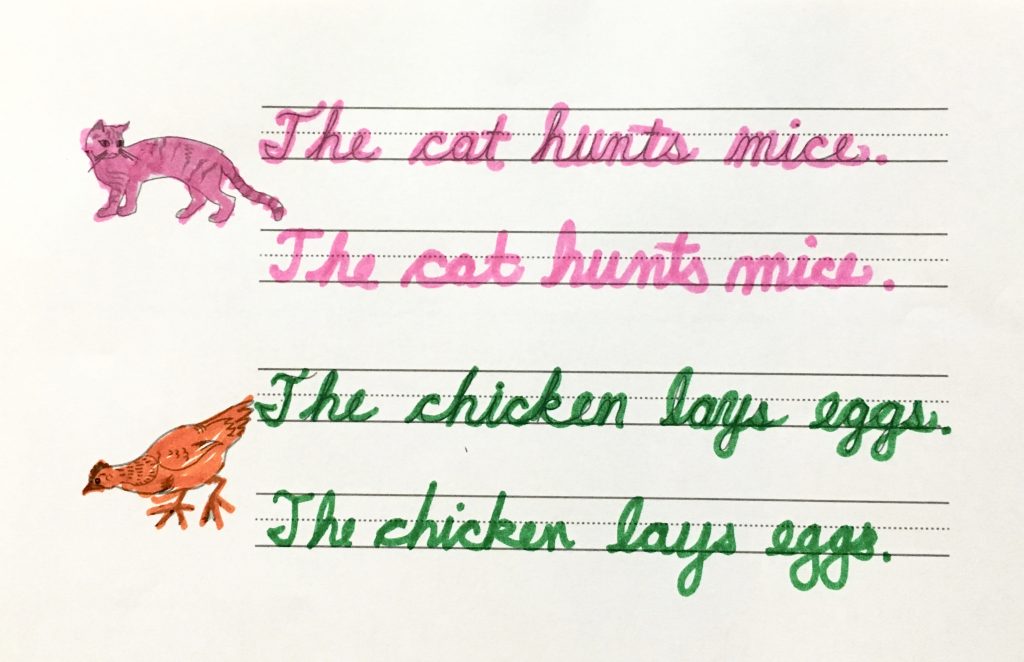 The cat hunts mice.
The cat hunts mice.
The chicken lays eggs.
The chicken lays eggs.